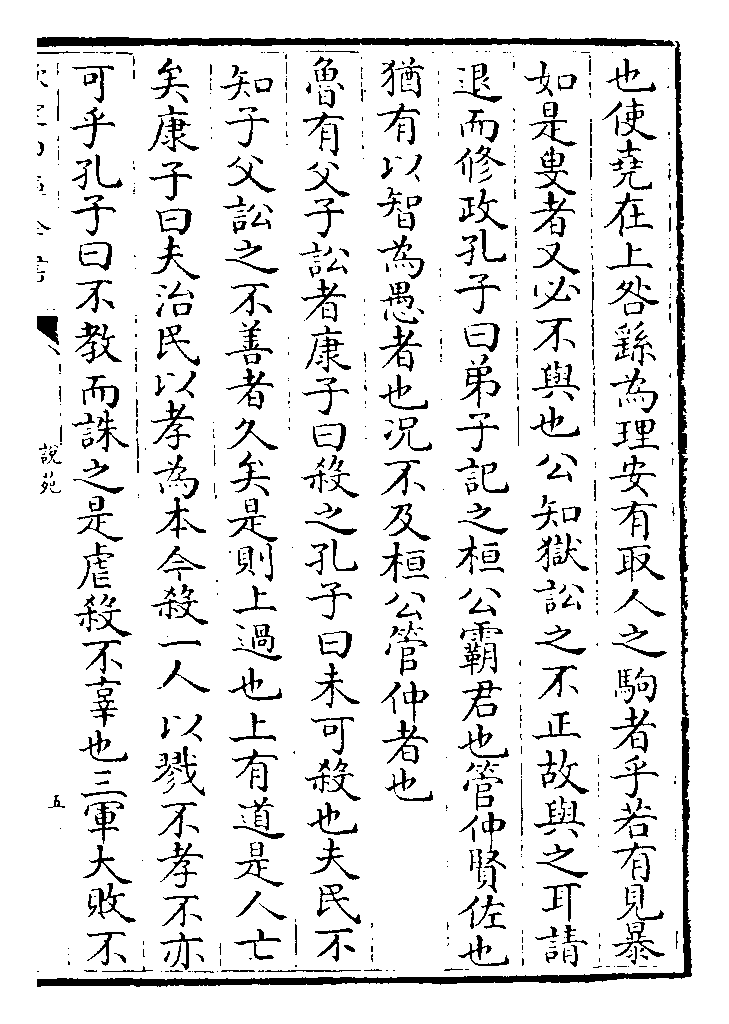 也使堯在上咎繇為理安有取人之駒者乎若有見暴
如是叟者又必不與也公知獄訟之不正故與之耳請
退而修政孔子曰弟子記之桓公霸君也管仲賢佐也
猶有以智為愚者也况不及桓公管仲者也
魯有父子訟者康子曰殺之孔子曰未可殺也夫民不
知子父訟之不善者久矣是則上過也上有道是人亡
矣康子曰夫治民以孝為本今殺一人以戮不孝不亦
可乎孔子曰不教而誅之是虐殺不辜也三軍大敗不
說苑
五